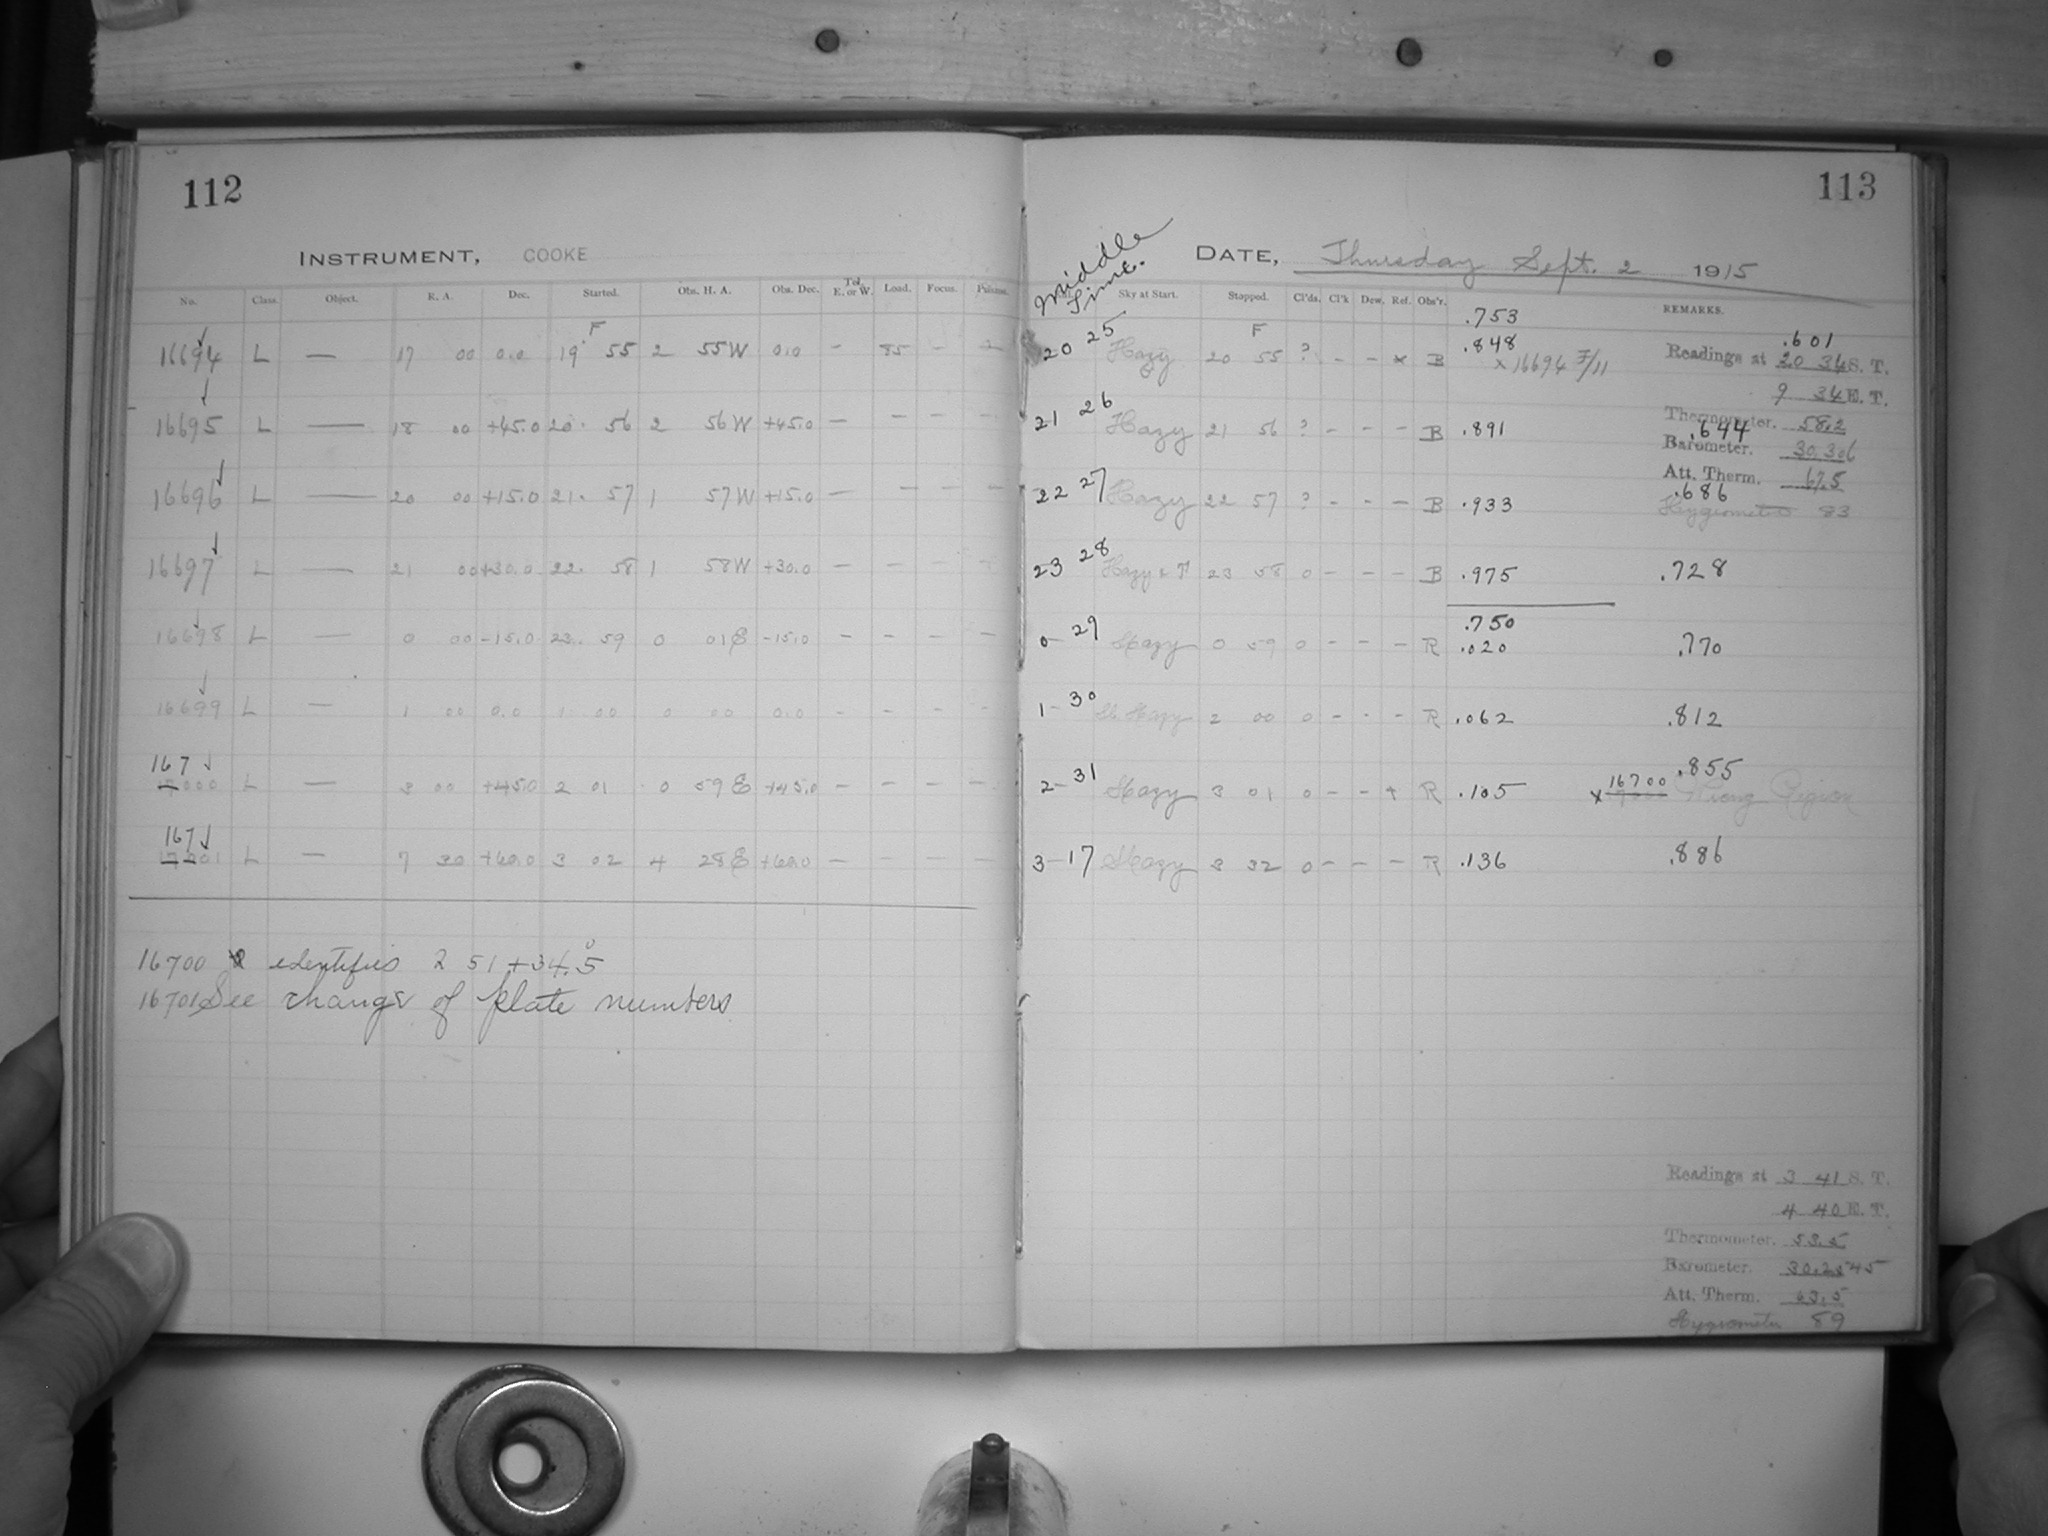 112
INSTRUMENT, COOKE
No. Class. Object. R. A. Dec. Started. Obs. H. A. Obs. Dec. Tel. E. or W. Load. Focus.
16694 L — 17 00 0.0 19 F 55 2 55W 0.0 – 85 –
16695 L — 18 00 +45.0 20 56 2 56W +45.0 – – – –
16696 L — 20 00 +15.0 21 57 1 57W +15.0 – – – –
16697 L — 21 00 +30.0 22 58 1 58W +30.0 – – –
16698 L — 0 00 -15.0 23 59 0 01E -15.0 – – – –
16699 L — 1 00 0.0 1 00 0 00 0.0 – – – –
167
17000 L — 3 00 +45.0 2 01 0 59E +45.0 – – – –
167
17001 L — 7 30 +60.0 3 02 4 28E +60.0 – – – –
16700 identifies 2 51 +34.°5
16701 See change of plate numbers
113
Middle Time.
DATE, Thursday Sept. 2 1915
Sky at Start. Stopped. Cl'ds. Cl'k Dew. Ref. Obs'r. REMARKS.
.753
20 25 Hazy 20 F 55 ? – – x B .848 x 16694 F/11
21 26 Hazy 21 56 ? – – – B .891
22 27 Hazy 22 57 ? – – – B .933
23 28 Hazy 23 58 0 – – – B .975 .728
.750
0- 29 Hazy 0 59 0 – – – R .020 .770
1- 30 Hazy 2 00 0 – – – R .062 .812
2- 31 Hazy 3 01 0 – – + R .105 .855
x 16700 Wrong Region
3-17 Hazy 3 32 0 – – – R .136 .886
.601
Readings at 20 34 S. T.
9 34 E. T.
Thermometer. 58.2
.644
Barometer. 30.306
Att. Therm. 67.5
.686
Hygrometer 83
Readings at 3 41 S. T.
4 40 E. T.
Thermometer. 53.5
Barometer.
Att. Therm. 63.5
Hygrometer 89